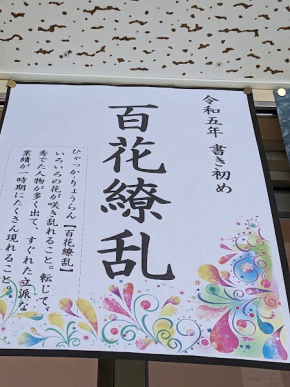 令和五年 書き初め
百花繚乱
ひゃっかりょうらん【百花繚乱】
いろいろの花が咲き乱れること。転じて、
秀でた人物が多く出て、すぐれた立派な
業績が一時期にたくさん現れること。